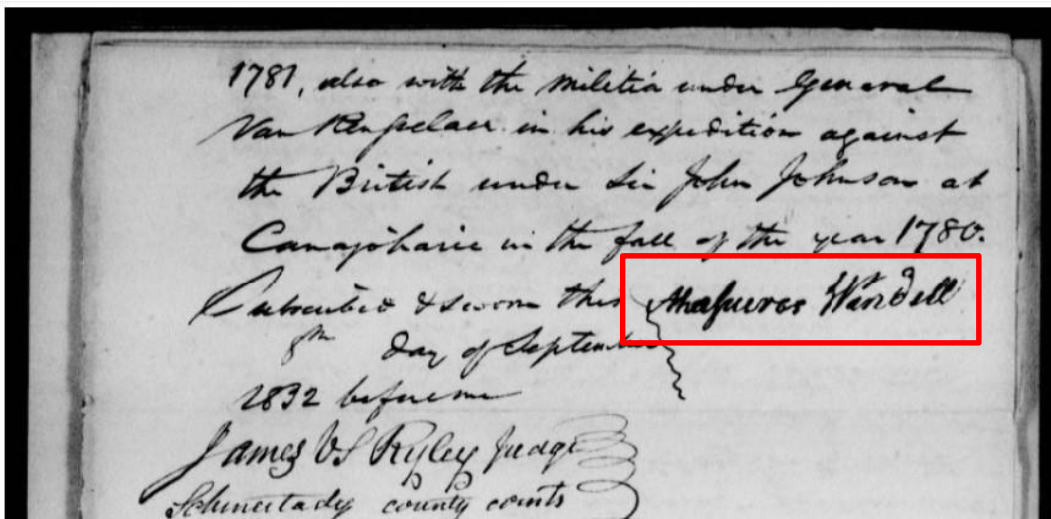 1781, also with the militia under General
Van Renſselaer in his expedition against
the British under Sir John Johnson at
Canajoharie in the fall of the year 1780.
Subscribed & sworn this Ahaſueros Wendell
8th day of September
1832 before me
James V S Ryley Judge
Schenectady county courts